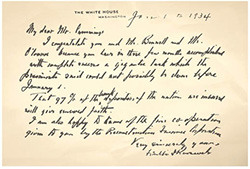 THE WHITE HOUSE
WASHINGTON
My dear Mr. Cummings
I congratulate you and Mr. and Mr.
O'Connor because you have in these few months accomplished
with complete success a gigantic task which the
pessimists said could not possibly be done before
January 1.
That 97% of the of the nation are insured
will give renewed faith.
I am also happy to know of the fine co-operation
given to you by the Reconstruction Finance Corporation
Very sincerely yours